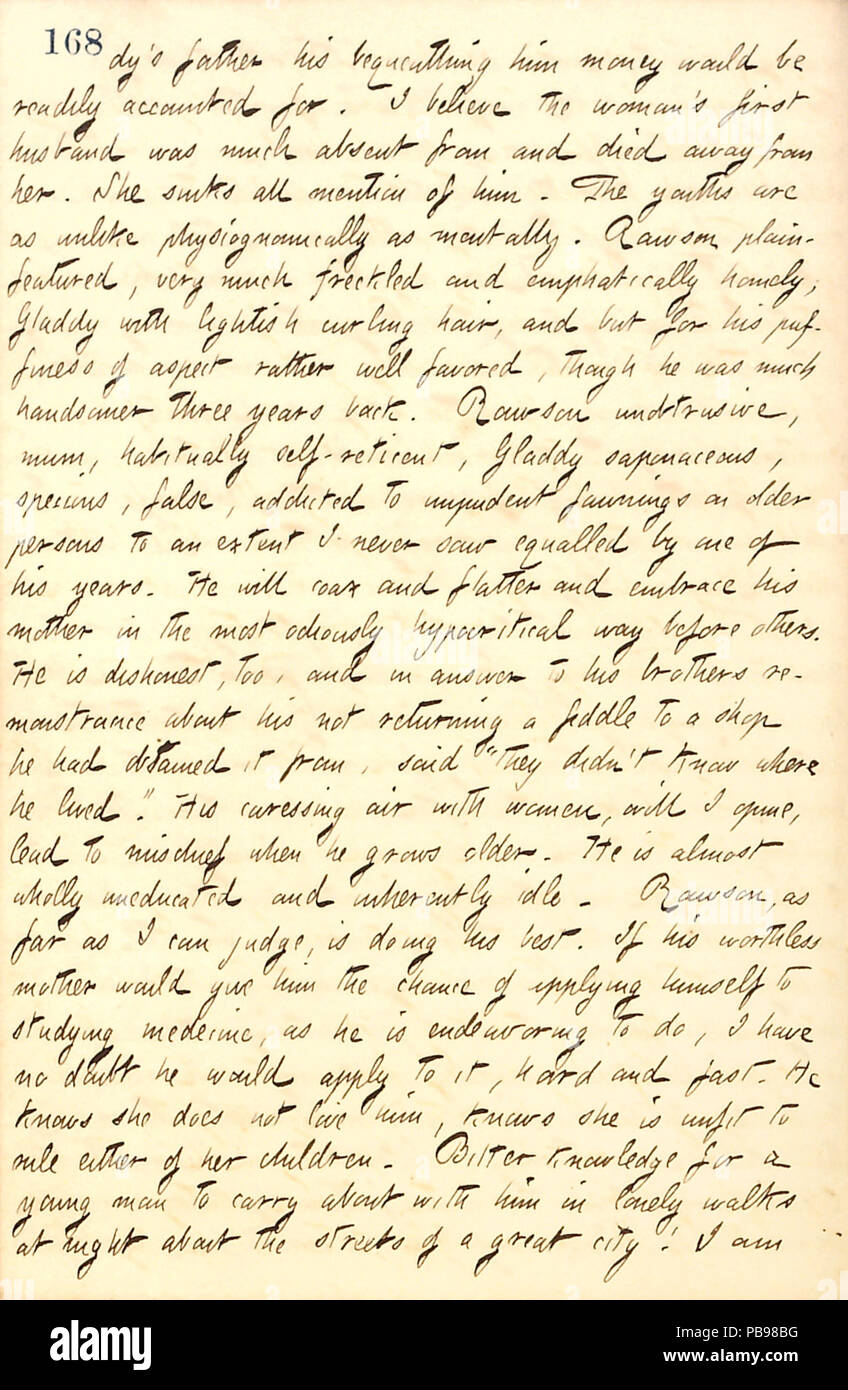 168
dy's father his bequeathing him money would be
readily accounted for. I believe the woman's first
husband was much absent from and died away from
her. She sinks all mention of him. The youths are
as unlike physiognomically as mentally. Rawson plain-
featured, very much freckled and emphatically homely,
Gladdy with lightish curling hair, and but for his puf-
finess of aspect rather well favored, though he was much
handsomer three years back. Rawson unobtrusive,
mum, habitually self-reticent, Gladdy saponaceous,
specious, false, addicted to impudent fawnings on older
persons to an extent I never saw equalled by one of
his years. He will coax and flatter and embrace his
mother in the most odiously hypocritical way before others.
He is dishonest, too, and in answer to his brothers re-
monstrance about his not returning a fiddle to a shop
he had obtained it from, said "they didn't know where
he lived". His caressing air with women, will I opine,
lead to mischief when he grows older. He is almost
wholly uneducated and inherently idle - Rawson, as
far as I can judge, is doing his best. If his worthless
mother would give him the chance of applying himself to
studying medecine, as he is endeavoring to do, I have
no doubt he would apply to it, hard and fast. He
knows she does not love him, knows she is unfit to
rule either of her children - Bitter knowledge for a
young man to carry about with him in lonely walks
at night about the streets of a great city! I am
alamy
Image ID: PB98BG
www.alamy.com